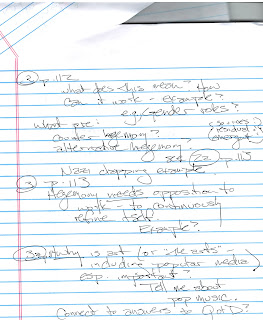 ② p. 112
what does this mean? How
can it work - example?
e.g. gender roles?
what are:
counter hegemony?
alternative hegemony?
(sources)
(residual &
emergent
see 22 p. 115
Nazi chopping example
③ p. 113
Hegemony needs opposition to
work - to continuously
refine itself.
Example?
3a) Why is art (or "the arts" -
including popular media)
esp. important?
Tell me about
pop music..
Connect to answers to Q. D?